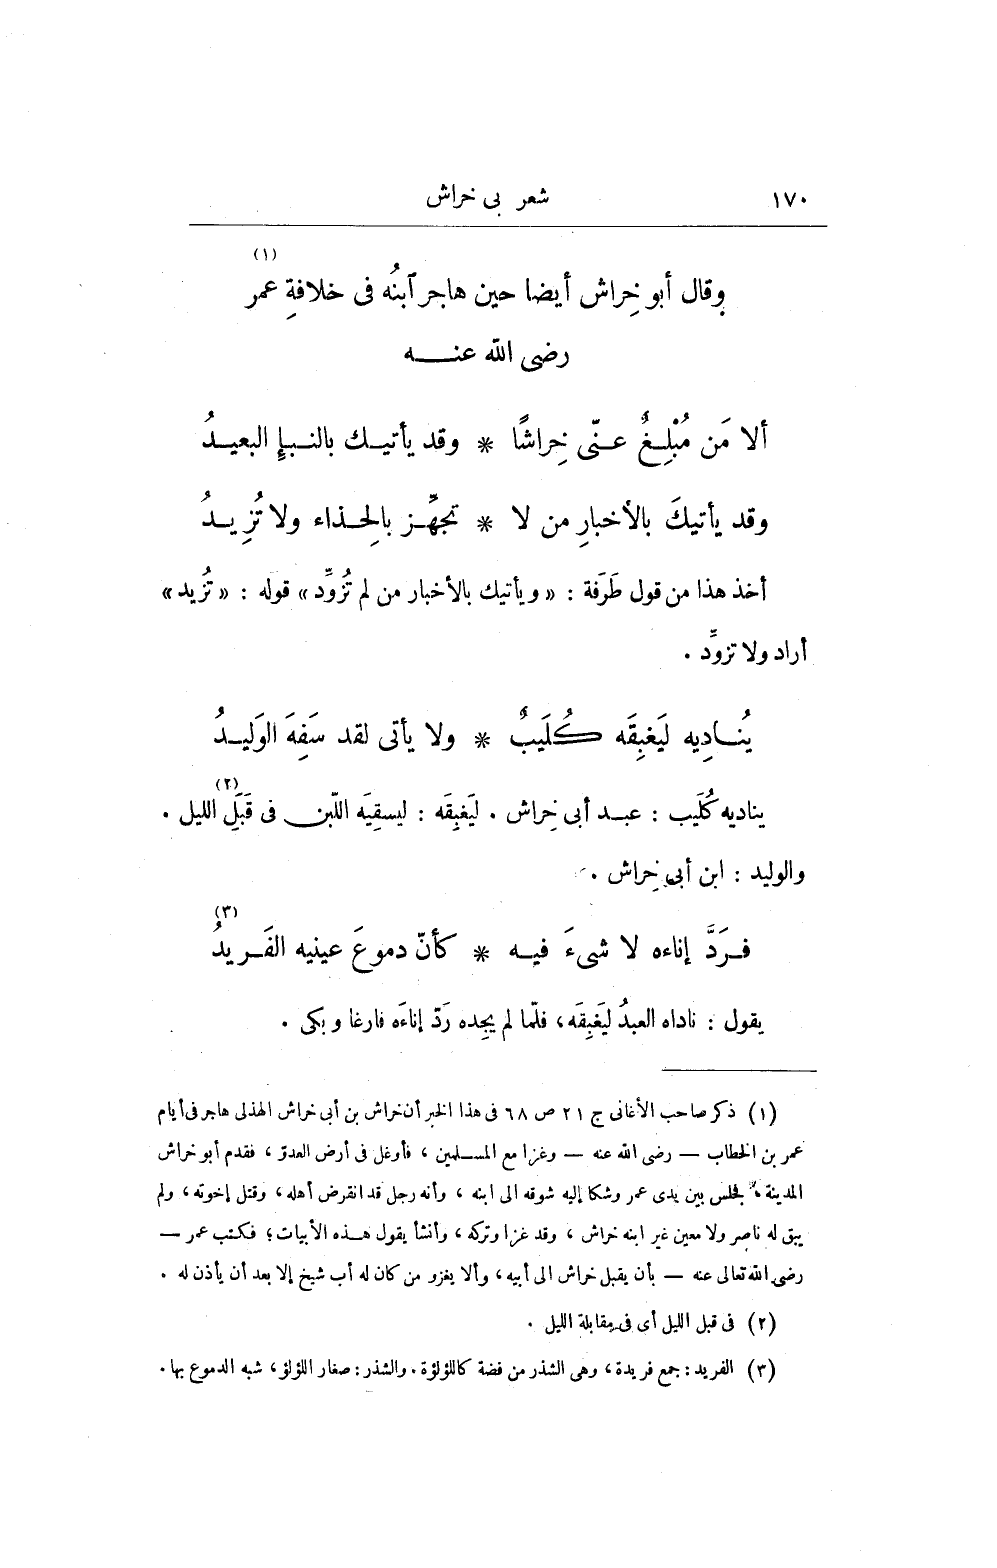 ١٧٠ شعر بى خراش
وقال أبو خِراش أيضا حين هاجر ٱبنُه فى خلافةِ عمر (١)
رضى الله عنـــه
ألا مَن مُبْلِـغٌ عـنّى خِراشًا * وقد يأتيـك بالنـبإِ البعيـدُ
وقد يأتيكَ بالأخبارِ من لا * تجهِّـز بالحِـذاء ولا تُزِيـدُ
أخذ هذا من قول طَرَفة : « ويأتيك بالأخبار من لم تُزوِّد » قوله : « تُزيد »
أراد ولا تزوِّد .
يُنـادِيه لَيَغبِقَه كُلَيبٌ * ولا يأتى لقد سَفِهَ الوَليـدُ
يناديه كُلَيب : عبـد أبى خِراش . ليَغبِقَه : ليسقِيَه اللّبن فى قَبَلِ الليل (٢) .
والوليد : ابن أبى خِراش .
فـرَدَّ إناءه لا شىءَ فيـه * كأنّ دموعَ عينيه الفَـريدُ (٣)
يقول : ناداه العبدُ ليَغبِقَه، فلمّا لم يجِده رَدّ إناءَه فارغا وبكى .
(١) ذكر صاحب الأغانى ج ٢١ ص ٦٨ فى هذا الخبر أن خراش بن أبى خراش الهذلى هاجر فى أيام
عمر بن الخطاب — رضى الله عنه — وغزا مع المسـلمين ، فأوغل فى أرض العدوّ ، فقدم أبو خراش
المدينة ، فجلس بين يدى عمر وشكا إليه شوقه الى ابنه ، وأنه رجل قد انقرض أهله، وقتل إخوته، ولم
يبق له ناصر ولا معين غير ابنه خراش ، وقد غزا وتركه ، وأنشأ يقول هـذه الأبيات؛ فكتب عمر —
رضى الله تعالى عنه — بأن يقبل خراش الى أبيه ، وألا يغزو من كان له أب شيخ إلا بعد أن يأذن له .
(٢) فى قبل الليل أى فى مقابلة الليل .
(٣) الفريد : جمع فريدة، وهى الشذر من فضة كاللؤلؤة . والشذر : صغار اللؤلؤ، شبه الدموع بها .